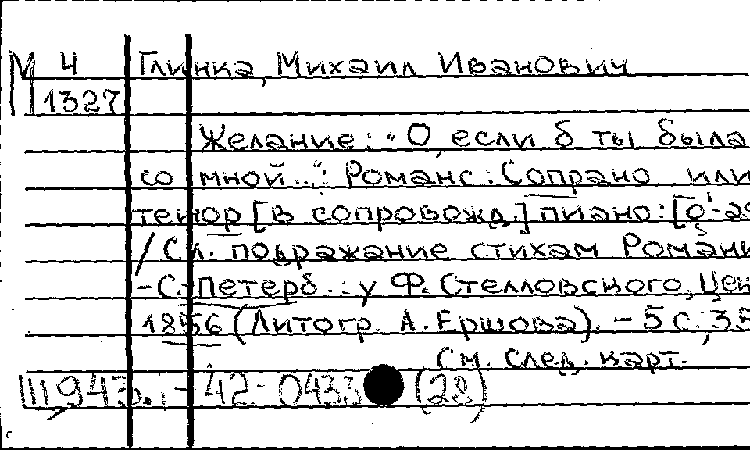 М 4 Глинка, Михаил Иванович
1327
Желание: "О, если б ты была
со мной..." Романс: Сопрано или
тенор [в сопровожд.] пиано: [о¹-as
/ Сл. подражание стихам Романи
- С. Петерб.: у Ф. Стелловского, Ценз
1856 (Литогр. А. Ершова). - 5 с., 35
См. след. карт.
III 943 - 42 - 0433 (28)